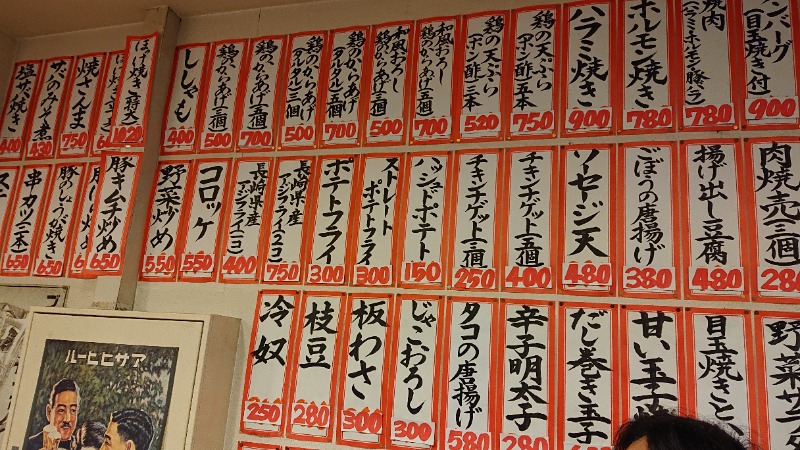 ハンバーグ
(目玉焼き付)
900
焼肉
(ハラミ・ホルモン・豚バラ)
780
ホルモン焼き
780
ハラミ焼き
900
鶏の天ぷら
(ポン酢)五本
750
鶏の天ぷら
(ポン酢)三本
520
和風おろし
鶏のからあげ(五個)
700
和風おろし
鶏のからあげ(三個)
500
鶏のからあげ
(タルタル)五個
700
鶏のからあげ
(タルタル)三個
500
鶏のからあげ(五個)
700
鶏のからあげ(三個)
500
ししゃも
400
ほっけ焼き(特大)
1020
焼さんま
750
さばのみそ煮
430
塩サバ焼き
400
肉焼売(三個)
280
揚げ出し豆腐
480
ごぼうの唐揚げ
380
ソーセージ天
480
チキンナゲット(五個)
400
チキンナゲット(三個)
250
ハッシュドポテト
150
ストレート
ポテトフライ
300
ポテトフライ
300
長崎県産
アジフライ(2コ)
750
長崎県産
アジフライ(1コ)
400
コロッケ
550
野菜炒め
550
豚キムチ炒め
650
豚のしょうが焼き
650
串カツ(二本)
650
野菜サラ
目玉焼きと、
甘い玉子
だし巻き玉子
辛子明太子
280
タコの唐揚げ
580
じゃこおろし
300
板わさ
300
枝豆
280
冷奴
250
ルービヒサア